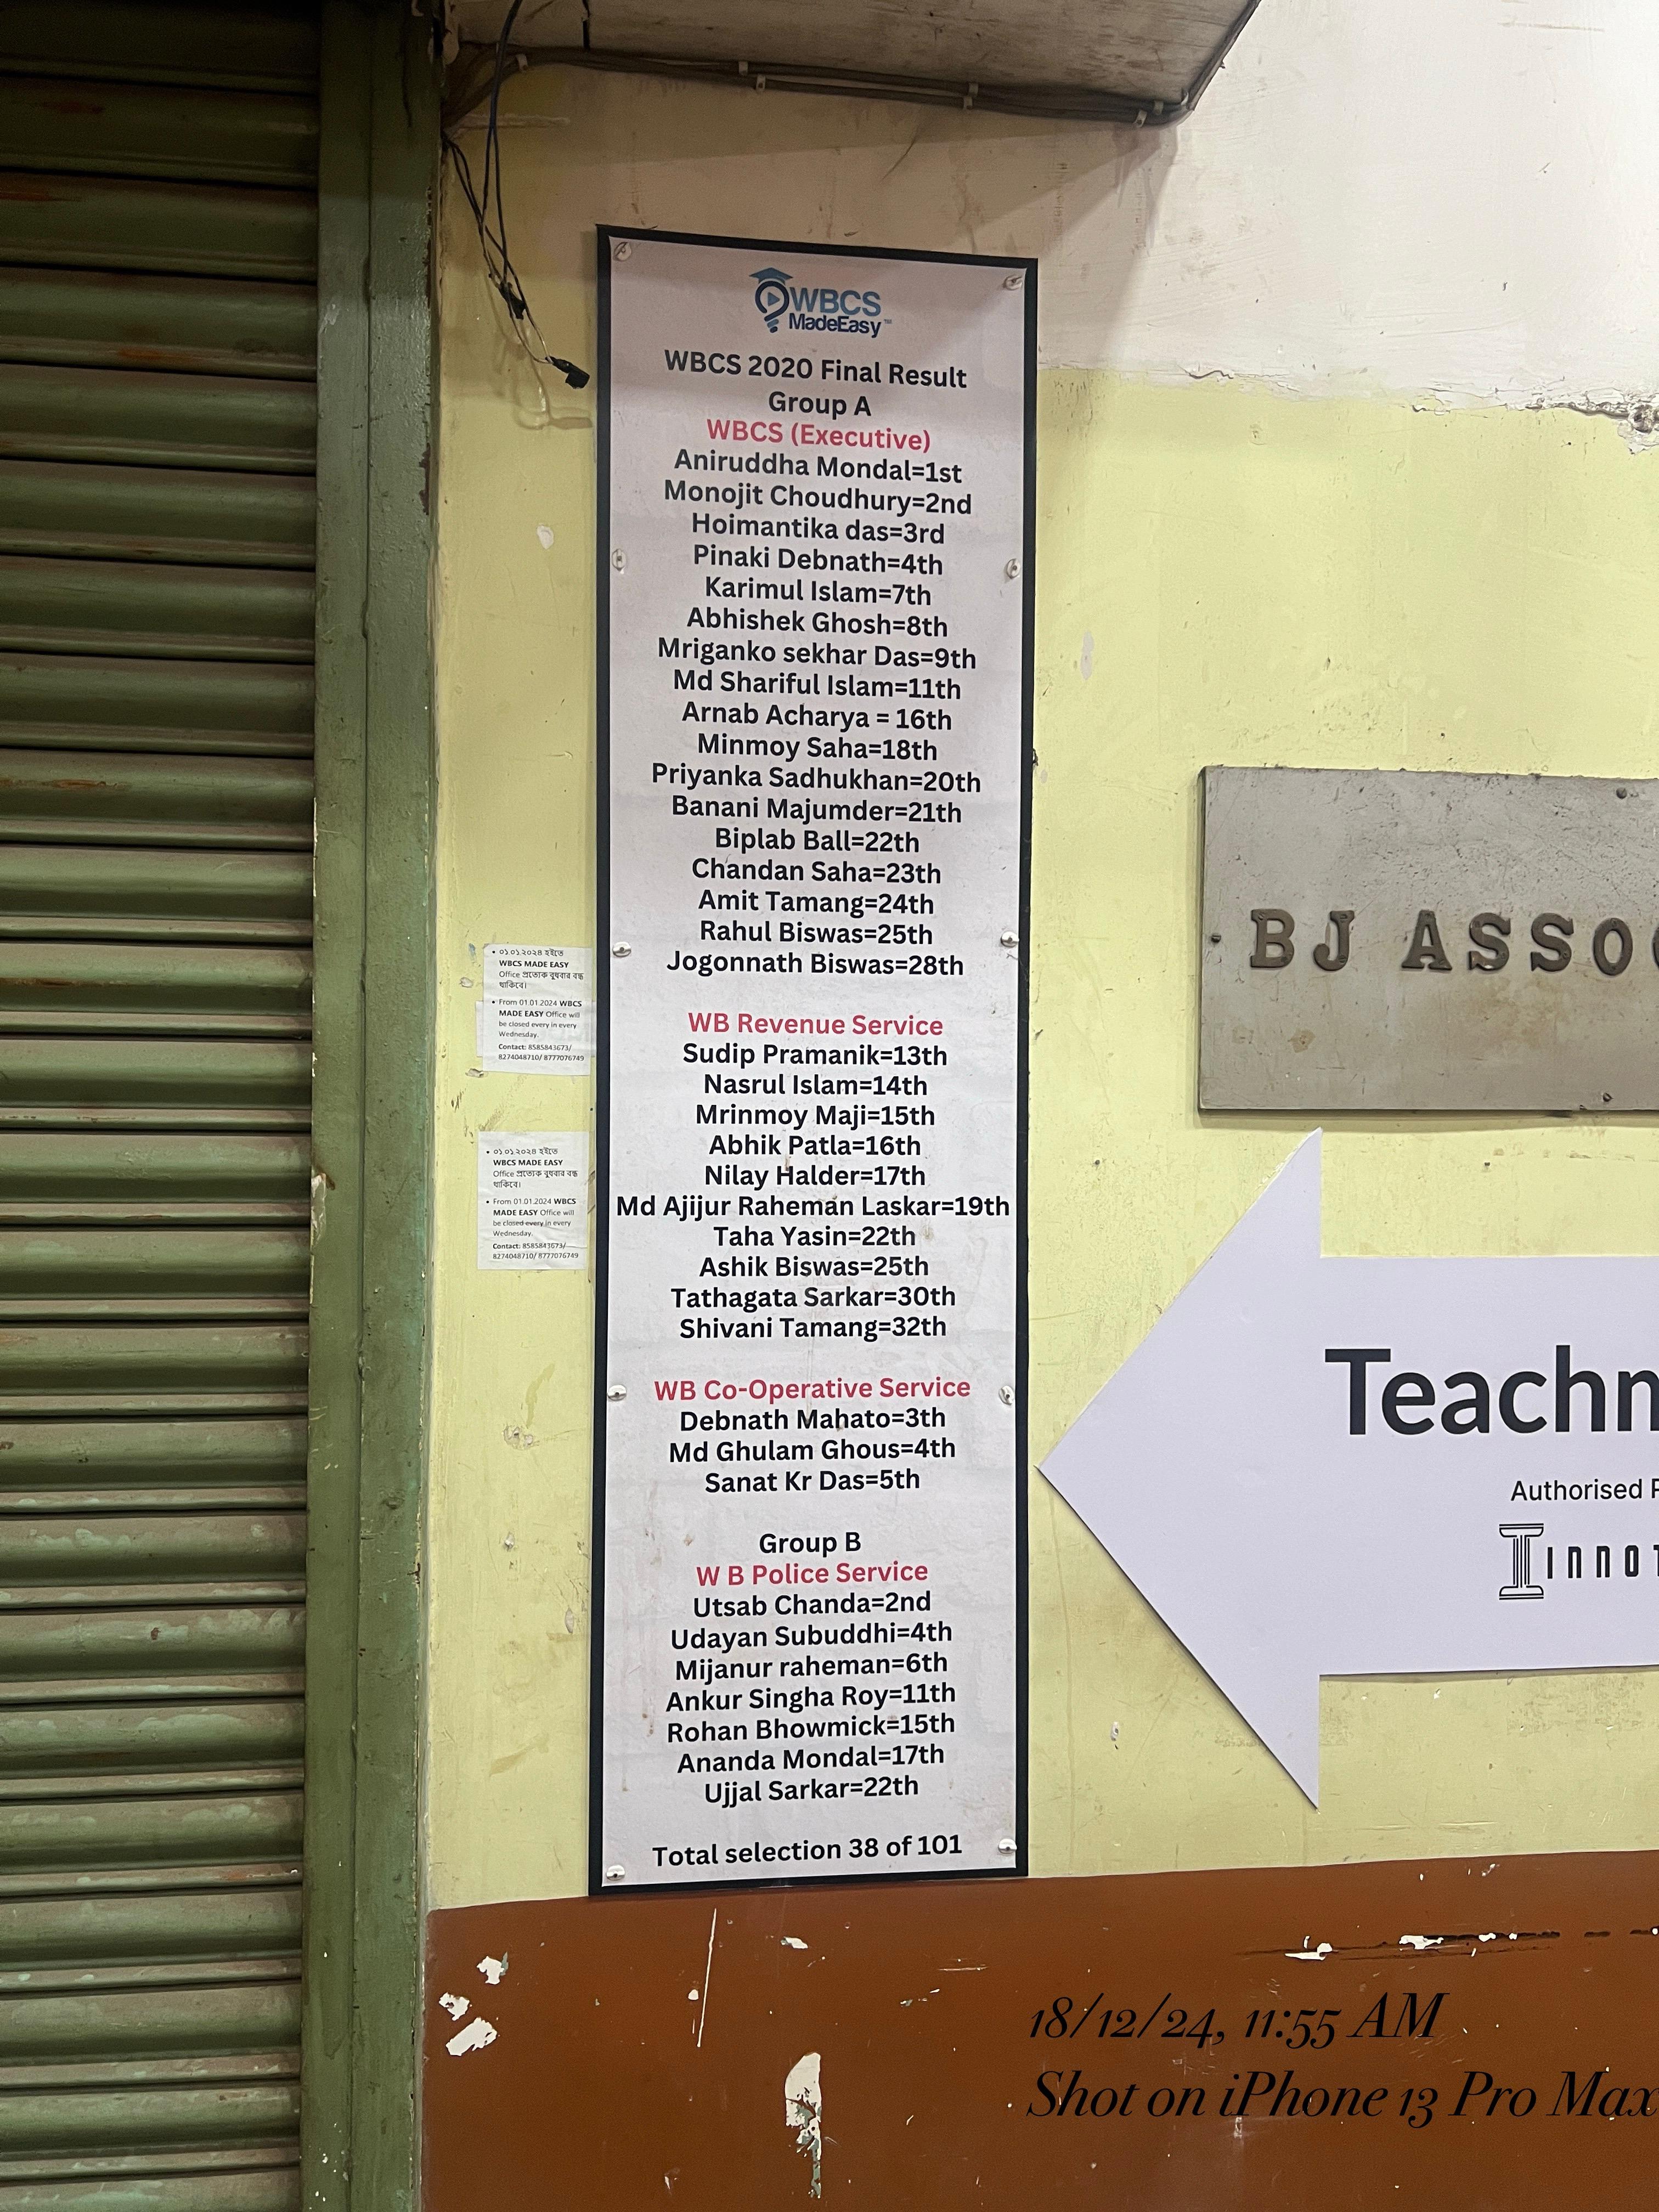 WBCS
MadeEasy™
WBCS 2020 Final Result
Group A
WBCS (Executive)
Aniruddha Mondal=1st
Monojit Choudhury=2nd
Hoimantika das=3rd
Pinaki Debnath=4th
Karimul Islam=7th
Abhishek Ghosh=8th
Mriganko sekhar Das=9th
Md Shariful Islam=11th
Arnab Acharya = 16th
Minmoy Saha=18th
Priyanka Sadhukhan=20th
Banani Majumder=21th
Biplab Ball=22th
Chandan Saha=23th
Amit Tamang=24th
Rahul Biswas=25th
Jogonnath Biswas=28th
WB Revenue Service
Sudip Pramanik=13th
Nasrul Islam=14th
Mrinmoy Maji=15th
Abhik Patla=16th
Nilay Halder=17th
Md Ajijur Raheman Laskar=19th
Taha Yasin=22th
Ashik Biswas=25th
Tathagata Sarkar=30th
Shivani Tamang=32th
WB Co-Operative Service
Debnath Mahato=3th
Md Ghulam Ghous=4th
Sanat Kr Das=5th
Group B
W B Police Service
Utsab Chanda=2nd
Udayan Subuddhi=4th
Mijanur raheman=6th
Ankur Singha Roy=11th
Rohan Bhowmick=15th
Ananda Mondal=17th
Ujjal Sarkar=22th
Total selection 38 of 101
• ০১.০১.২০২৪ হইতে
WBCS MADE EASY
Office প্রত্যেক বুধবার বন্ধ
থাকিবে।
• From 01.01.2024 WBCS
MADE EASY Office will
be closed every in every
Wednesday.
Contact: 8585843673/
8274048710/ 8777076749
• ০১.০১.২০২৪ হইতে
WBCS MADE EASY
Office প্রত্যেক বুধবার বন্ধ
থাকিবে।
• From 01.01.2024 WBCS
MADE EASY Office will
be closed every in every
Wednesday.
Contact: 8585843673/
8274048710/ 8777076749
BJ ASSO
Teachn
Authorised
INNOT
18/12/24, 11:55 AM
Shot on iPhone 13 Pro Max